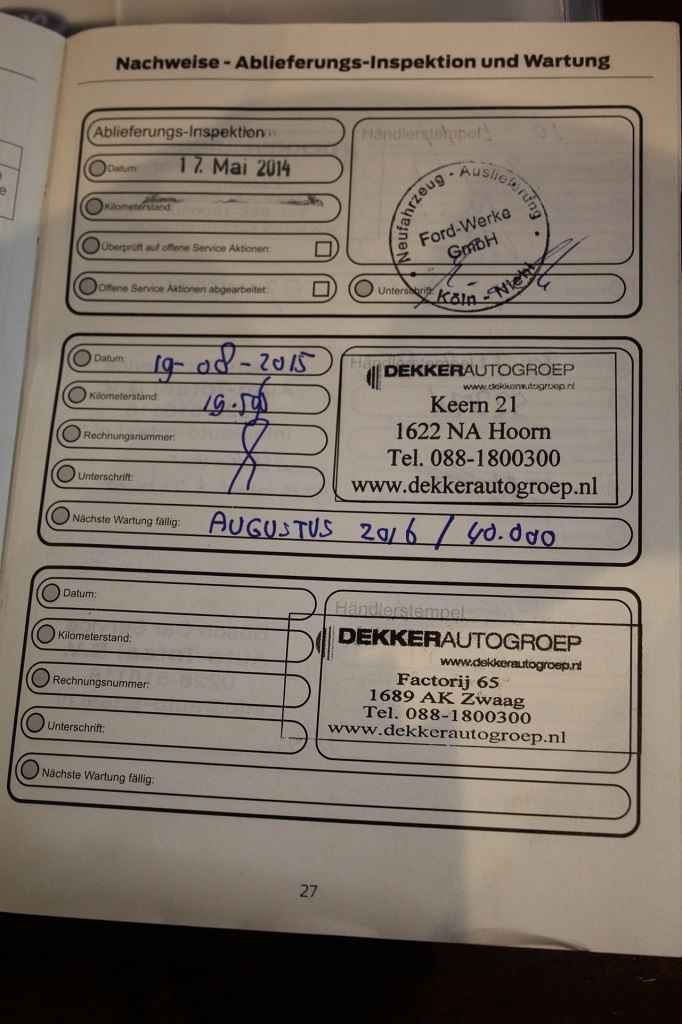 Nachweise - Ablieferungs-Inspektion und Wartung
Ablieferungs-Inspektion
Händlerstempel
Datum: 17. Mai 2014
Kilometerstand:
Überprüft auf offene Service Aktionen:
Offene Service Aktionen abgearbeitet:
Unterschrift:
Neufahrzeug - Auslieferung
Ford-Werke
GmbH
Köln - Niehl
Datum: 19-08-2015
Kilometerstand:
Rechnungsnummer:
Unterschrift:
DEKKERAUTOGROEP
www.dekkerautogroep.nl
Keern 21
1622 NA Hoorn
Tel. 088-1800300
www.dekkerautogroep.nl
Nächste Wartung fällig: AUGUSTUS 2016 / 40.000
Datum:
Kilometerstand:
Rechnungsnummer:
Unterschrift:
Händlerstempel
DEKKERAUTOGROEP
www.dekkerautogroep.nl
Factorij 65
1689 AK Zwaag
Tel. 088-1800300
www.dekkerautogroep.nl
Nächste Wartung fällig:
27